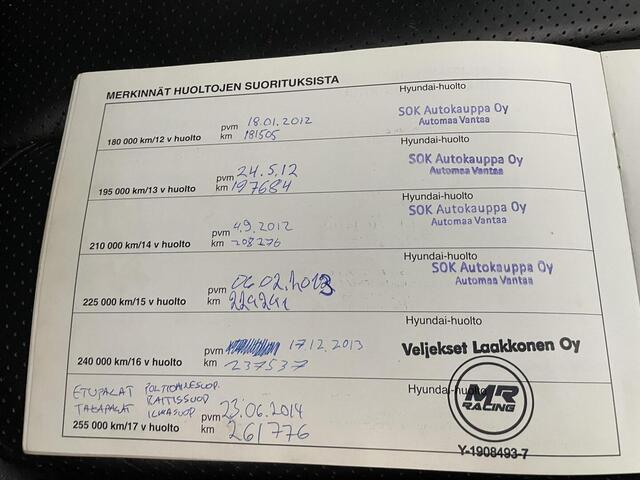 MERKINNÄT HUOLTOJEN SUORITUKSISTA
Hyundai-huolto
180 000 km/12 v huolto
pvm 18.01.2012
km 181505
SOK Autokauppa Oy
Automaa Vantaa
Hyundai-huolto
195 000 km/13 v huolto
pvm 24.5.12
km 197684
SOK Autokauppa Oy
Automaa Vantaa
Hyundai-huolto
210 000 km/14 v huolto
pvm 4.9.2012
km 208276
SOK Autokauppa Oy
Automaa Vantaa
Hyundai-huolto
225 000 km/15 v huolto
pvm 06.02.2013
km 224241
SOK Autokauppa Oy
Automaa Vantaa
Hyundai-huolto
240 000 km/16 v huolto
pvm 17.12.2013
km 237537
Veljekset Laakkonen Oy
Hyundai-huolto
ETUPALAT
TAKAPALAT
RAITISSUOD
ILMASUOD
255 000 km/17 v huolto
pvm 23.06.2014
km 261776
MR
RACING
Y-1908493-7